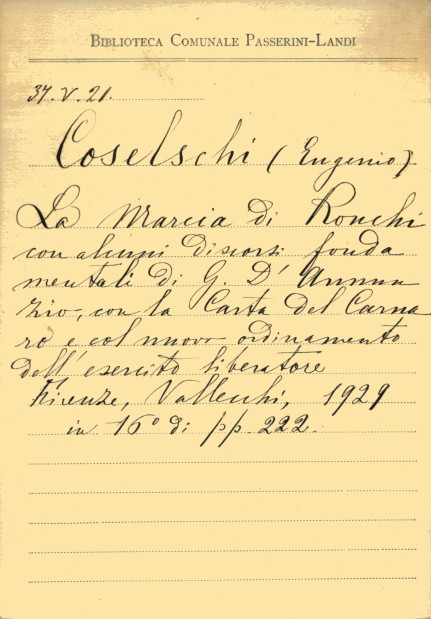 BIBLIOTECA COMUNALE PASSERINI-LANDI
37.V.21.
Coselschi (Eugenio)
La Marcia di Ronchi
con alcuni discorsi fonda
mentali di G. D'Annun
zio, con la Carta del Carna
ro e col nuovo ordinamento
dell'esercito liberatore
Firenze, Vallecchi, 1929
in 16° di pp. 222.